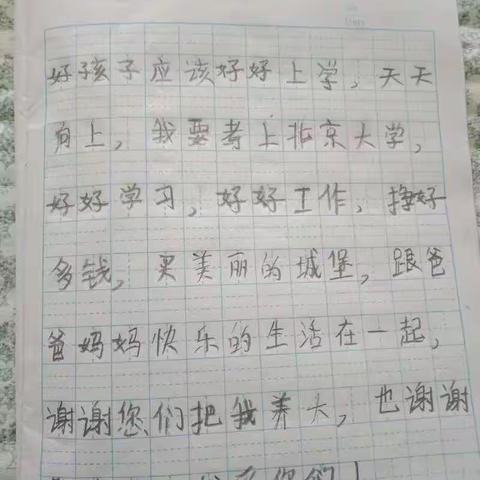 好孩子应该好好上学，天天
向上，我要考上北京大学，
好好学习，好好工作，挣好
多钱，买美丽的城堡，跟爸
爸妈妈快乐的生活在一起，
谢谢您们把我养大，也谢谢